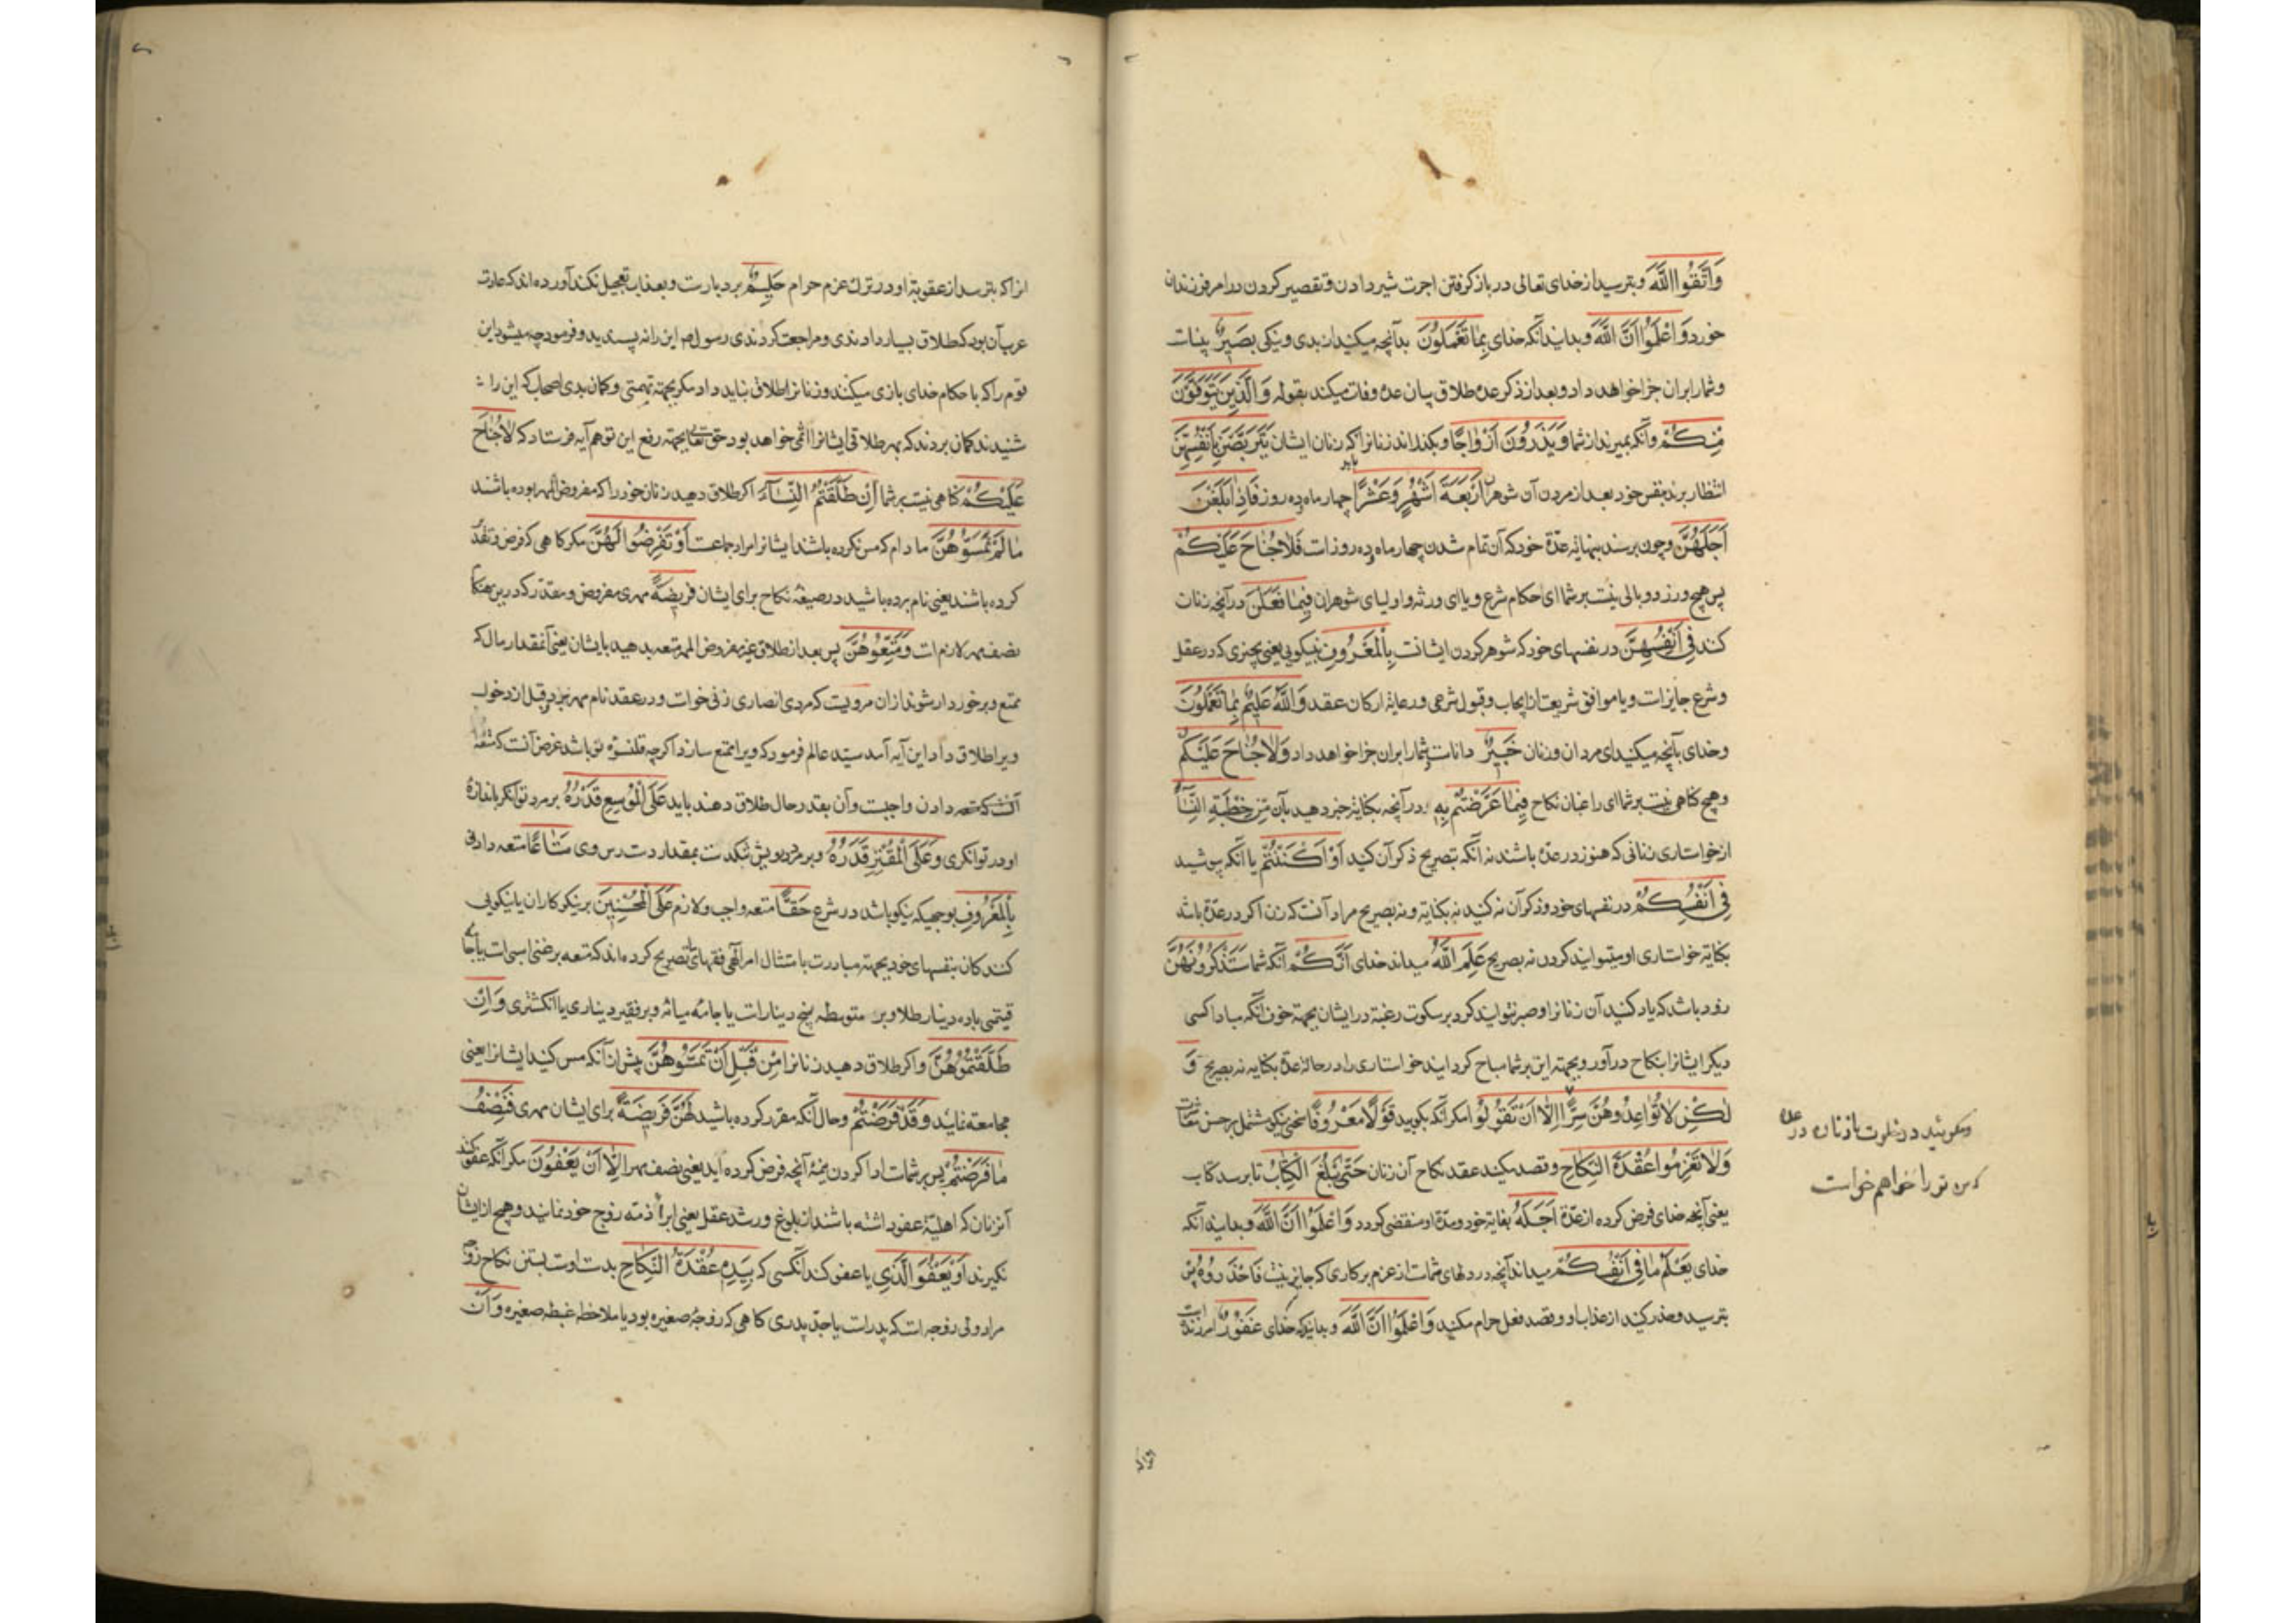 وَاتَّقُوا اللَّهَ وبترسید از خدای تعالی در باز کرفتن اجرت شیر دادن و تقصیر کردن در امر فرزندان
خورد وَاعْلَمُوا اَنَّ اللَّهَ وبدانید آنکه خدای بِمَا تَعْمَلُونَ بدآنچه میکنید از بدی و نیکی بَصِیرٌ بیناست
وشمارا بران جزا خواهد داد وبعد از ذکر عدهٔ طلاق بیان عدهٔ وفات میکند بقوله وَالَّذِینَ یُتَوَفَّوْنَ
مِنْکُمْ وآنکه بمیرند از شما وَیَذَرُونَ اَزْوَاجًا وبکذارند زنانرا باید که زنان ایشان یَتَرَبَّصْنَ بِاَنْفُسِهِنَّ
انتظار برند بنفس خود بعد از مردن آن شوهران اَرْبَعَةَ اَشْهُرٍ وَعَشْرًا چهار ماه وده روز فَاِذَا بَلَغْنَ
اَجَلَهُنَّ وچون برسند بنهایة عدّهٔ خود که آن تمام شدن چهار ماه وده روزست فَلَا جُنَاحَ عَلَیْکُمْ
پس هیچ وزر و وبالی نیست بر شما ای حکام شرع ویا ای ورثه و اولیای شوهران فِیمَا فَعَلْنَ درآنچه زنان
کنند فِی اَنْفُسِهِنَّ در نفسهای خود که شوهر کردن ایشانست بِالْمَعْرُوفِ بنیکویی یعنی بچیزی که در عقل
وشرع جایزست ویا موافق شریعت از ایجاب وقبول شرعی ورعایة ارکان عقد وَاللَّهُ عَلِیمٌ بِمَا تَعْمَلُونَ
وخدای بآنچه میکنید ای مردان وزنان خَبِیرٌ داناست شمارا بران جزا خواهد داد وَلَا جُنَاحَ عَلَیْکُمْ
وهیچ کناهی نیست بر شما ای راغبان نکاح فِیمَا عَرَّضْتُمْ بِهِ درآنچه بکنایة خبر دهید بآن مِنْ خِطْبَةِ النِّسَآءِ
از خواستاری زنانی که هنوز در عدّه باشند نه انکه بتصریح ذکر آن کنید اَوْ اَکْنَنْتُمْ یا آنکه پوشید
فِی اَنْفُسِکُمْ در نفسهای خود وذکر آن نه کنید نه بکنایة و نه بصریح مراد آنست که زن اکر در عدّة باشد
بکنایة خواستاری او میتوانید کردن نه بصریح عَلِمَ اللَّهُ میداند خدای اَنَّکُمْ آنکه شما سَتَذْکُرُونَهُنَّ
زود باشد که یاد کنید آن زنانرا وصبر نتوانید کرد بر سکوت رغبة در ایشان بجهة خوف آنکه مبادا کسی
دیکر ایشانرا بنکاح درآورد وبجهة این بر شما مباح کردانید خواستاری را در حالة عدّة بکنایه نه بصریح وَ
لٰکِنْ لَا تُوَاعِدُوهُنَّ سِرًّا اِلَّا اَنْ تَقُولُوا مکر آنکه بکویید قَوْلًا مَعْرُوفًا سخنی نیکو مشتمل بر حسن معاشرت
وَلَا تَعْزِمُوا عُقْدَةَ النِّکَاحِ وقصد مکنید عقد نکاح آن زنان حَتَّی یَبْلُغَ الْکِتَابُ تا برسد کتاب
یعنی آنچه خدای فرض کرده از عدّة اَجَلَهُ بغایة خود ومدّة او منقضی کردد وَاعْلَمُوا اَنَّ اللَّهَ وبدانید آنکه
خدای یَعْلَمُ مَا فِی اَنْفُسِکُمْ میداند آنچه در دلهای شماست از عزم بر کاری که جایز نیست فَاحْذَرُوهُ پس
بترسید وحذر کنید از عذاب او وقصد فعل حرام مکنید وَاعْلَمُوا اَنَّ اللَّهَ وبدانید که خدای غَفُورٌ امرزنده است
در خلوت با زنان در عده
که من تو را خواهم خواست
انرا که بترسد از عقوبة او در ترك عزم حرام حَلِیمٌ بردبارست وبعذاب تعجیل نکند آورده اند که عادت
عرب آن بود که طلاق بسیار دادندی ومراجعت کردندی رسول ص این را نه پسندید وفرمود چه میشود این
قوم را که با حکام خدای بازی میکنند وزنانرا طلاق نباید داد مکر بجهة تهمتی وکمان بدی اصحاب که این را
شنیدند کمان بردند که بهر طلاقی ایشانرا اثمی خواهد بود حق تعا بجهة رفع این توهم آیه فرستاد که لَاجُنَاحَ
عَلَیْکُمْ کناهی نیست بر شما اِنْ طَلَّقْتُمُ النِّسَآءَ اکر طلاق دهید زنان خود را که مفروض المهر بوده باشند
مَا لَمْ تَمَسُّوهُنَّ ما دام که مس نکرده باشید ایشانرا مراد جماعست اَوْ تَفْرِضُوا لَهُنَّ مکر کاهی که فرض وتقدیر
کرده باشند یعنی نام برده باشید در صیغهٔ نکاح برای ایشان فَرِیضَةً مهری مفروض ومقدر که درین هنکام
نصف مهر لازم است وَمَتِّعُوهُنَّ پس بعد از طلاق غیر مفروض المهر متعه بدهید بایشان یعنی آنمقدار مال که
تمتع وبرخوردار شوند ازان مرویست که مردی انصاری زنی خواست ودر عقد نام مهر نبرد وقبل از دخول
ویرا طلاق داد این آیه آمد سیّد عالم فرمود که ویرا متمتع ساز اکرچه قلنسوهٔ تو باشد غرض آنست که متعه
دادن واجبست وآن بقدر حال طلاق دهنده باید عَلَی الْمُوسِعِ قَدَرُهُ بر مرد توانکر باندازهٔ
او در توانکری وَعَلَی الْمُقْتِرِ قَدَرُهُ وبر مرد درویش تنکدست بمقدار دست رس وی مَتَاعًا متعه دادنی
بِالْمَعْرُوفِ بوجهیکه نیکو باشد در شرع حَقًّا متعه واجب ولازم عَلَی الْمُحْسِنِینَ بر نیکوکاران یا نیکویی
کنندکان بنفسهای خود بجهة مبادرت با متثال امر آلهی فقهای ما تصریح کرده اند که متعه بر غنی اسبی است یا جامهٔ
قیمتی یا ده دینار طلا وبر متوسطه پنج دینارست یا جامهٔ میانه وبر فقیر دیناری یا انکشتری وَاِنْ
طَلَّقْتُمُوهُنَّ واکر طلاق دهید زنانرا مِنْ قَبْلِ اَنْ تَمَسُّوهُنَّ پیش از آنکه مس کنید ایشانرا یعنی
مجامعة نمایند وَقَدْ فَرَضْتُمْ وحال آنکه مقرر کرده باشید لَهُنَّ فَرِیضَةً برای ایشان مهری فَنِصْفُ
مَا فَرَضْتُمْ پس بر شماست ادا کردن نیمهٔ آنچه فرض کرده اید یعنی نصف مهر اِلَّا اَنْ یَعْفُونَ مکر آنکه عفو کنند
آنزنان که اهلیة عفو داشته باشند از بلوغ ورشد عقل یعنی ابراء ذمه زوج خود نمایند وهیچ از ایشان
نکیرند اَوْ یَعْفُوَ الَّذِی یا عفو کند آنکسی که بِیَدِهِ عُقْدَةُ النِّکَاحِ بدست اوست بستن نکاح زوجه
مراد ولی زوجه است که پدرست یا جدّ پدری کاهی که زوجهٔ صغیره بود یا ملاحظه غبطه صغیره وَاَنْ